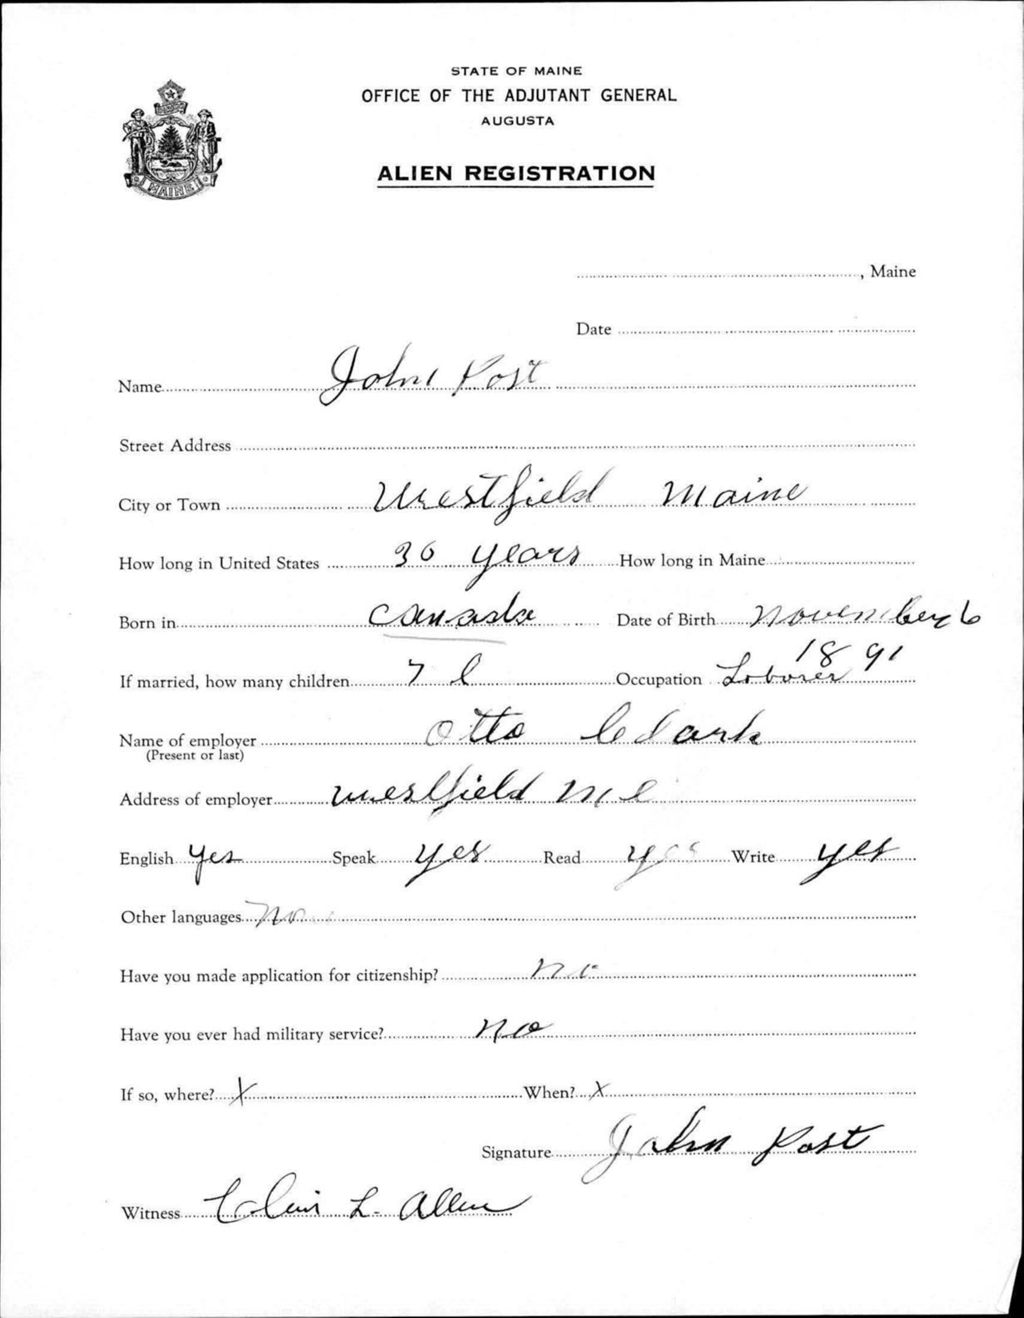 STATE OF MAINE
OFFICE OF THE ADJUTANT GENERAL
AUGUSTA
ALIEN REGISTRATION
MAINE
, Maine
Date
Name John Post
Street Address
City or Town Westfield Maine
How long in United States 30 years How long in Maine
Born in Canada Date of Birth November 6
1891
If married, how many children 7 Occupation Laborer
Name of employer Otto Clark
(Present or last)
Address of employer Westfield Me
English yes Speak yes Read yes Write yes
Other languages No
Have you made application for citizenship? no
Have you ever had military service? no
If so, where? X When? X
Signature John Post
Witness L. Allen